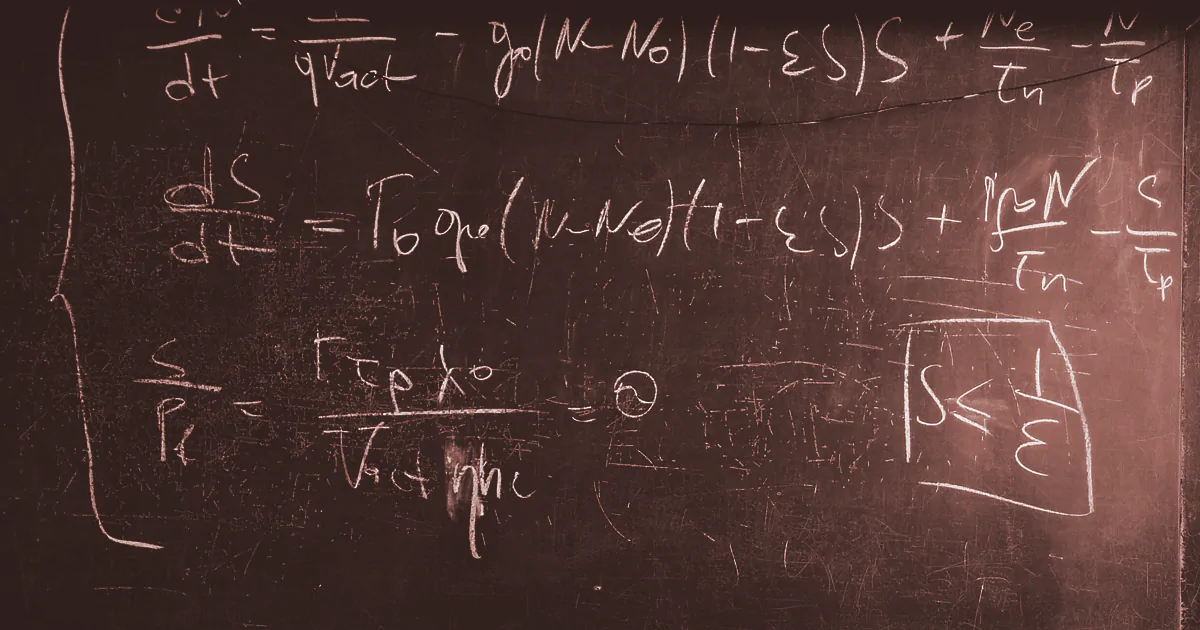 dN/dt = I/(qVact) - g₀(N-N₀)(1-εS)S + Ne/τn - N/τp
dS/dt = Γ₀g₀(N-N₀)(1-εS)S + N/τn - S/τp
S/Pε = Γτpλ₀/(Vactηhc) =
S ≤ 1/ε